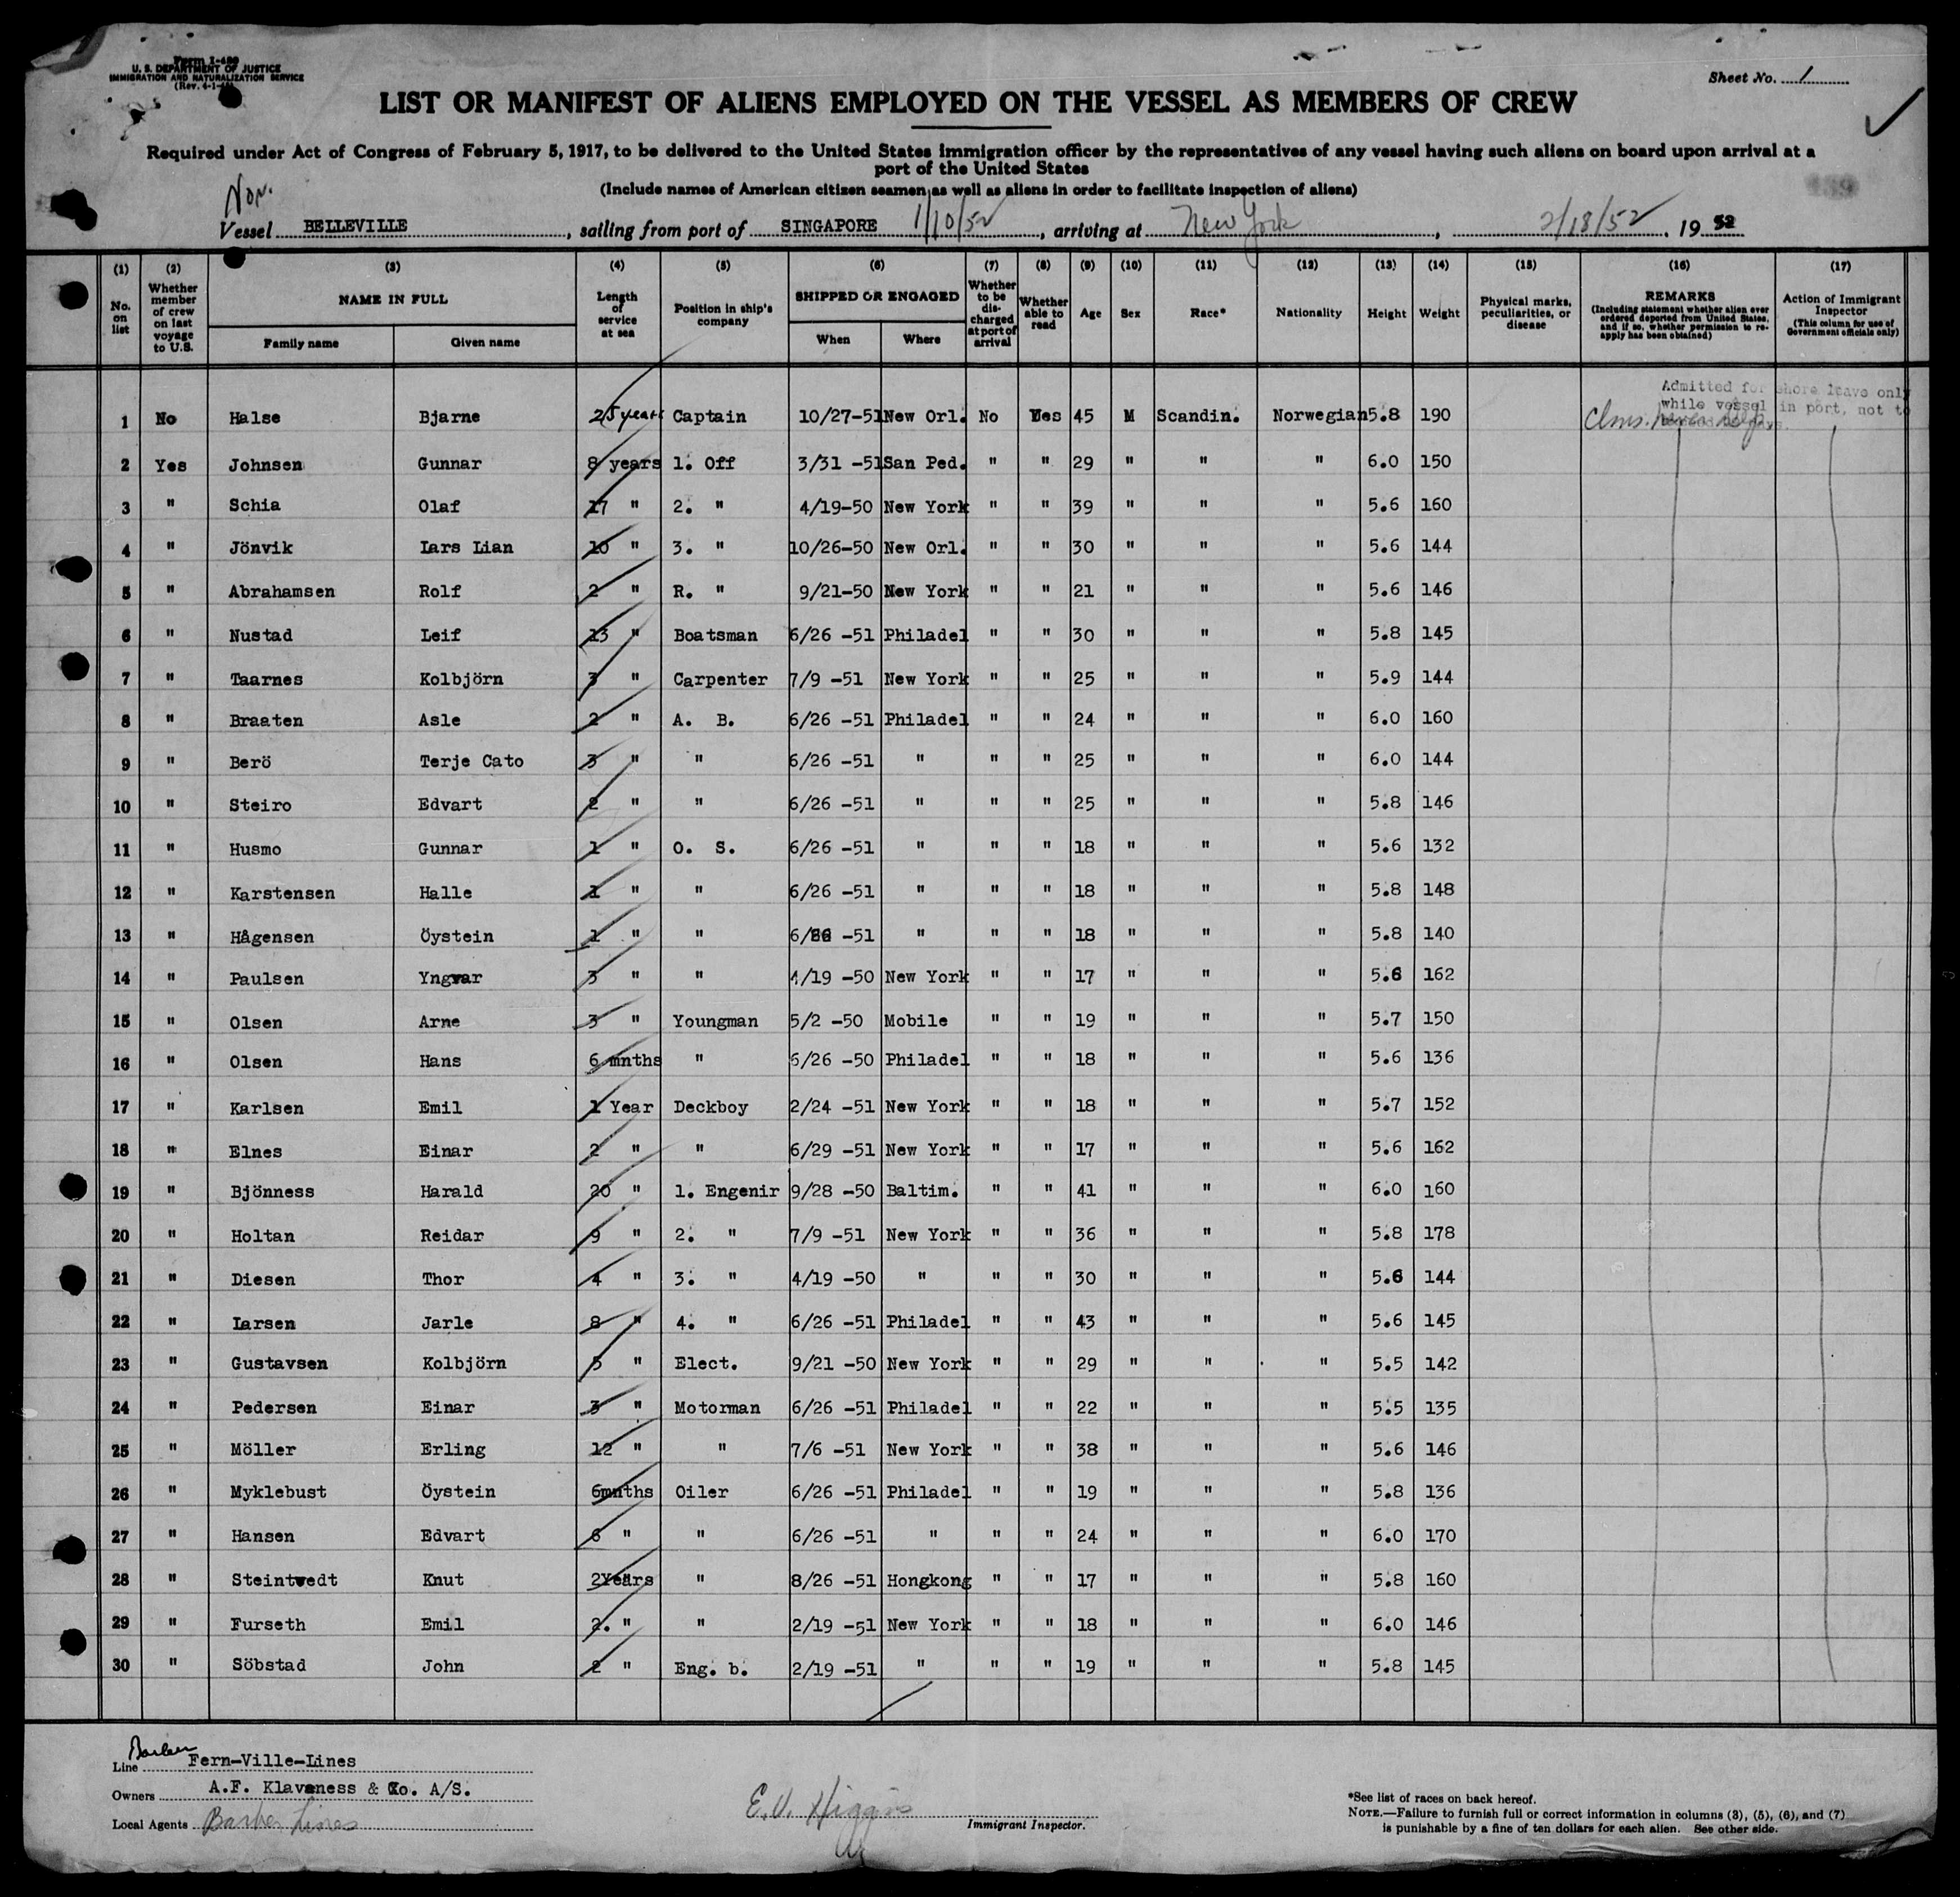 Form I-489
U. S. DEPARTMENT OF JUSTICE
IMMIGRATION AND NATURALIZATION SERVICE
Sheet No. 1
LIST OR MANIFEST OF ALIENS EMPLOYED ON THE VESSEL AS MEMBERS OF CREW
Required under Act of Congress of February 5, 1917, to be delivered to the United States immigration officer by the representatives of any vessel having such aliens on board upon arrival at a
port of the United States
(Include names of American citizen seamen as well as aliens in order to facilitate inspection of aliens)
Nor.
Vessel BELLEVILLE, sailing from port of SINGAPORE 1/10/52, arriving at New York, 2/18/52, 1952
(1) (2) (3) (4) (5) (6) (7) (8) (9) (10) (11) (12) (13) (14) (15) (16) (17)
No. on list Whether member of crew on last voyage to U.S. NAME IN FULL Family name Given name Length of service at sea Position in ship's company SHIPPED OR ENGAGED When Where Whether to be discharged at port of arrival Whether able to read Age Sex Race* Nationality Height Weight Physical marks, peculiarities, or disease REMARKS (Including statement whether alien ever ordered deported from United States, and if so, whether permission to reapply has been obtained) Action of Immigrant Inspector (This column for use of Government officials only)
Admitted for shore leave only
while vessel in port, not to
1 No Halse Bjarne 25 years Captain 10/27-51 New Orl. No Yes 45 M Scandin. Norwegian 5.8 190
2 Yes Johnsen Gunnar 8 years 1. Off 3/31 -51 San Ped. " " 29 " " " 6.0 150
3 " Schia Olaf 17 " 2. " 4/19-50 New York " " 39 " " " 5.6 160
4 " Jönvik Lars Lian 10 " 3. " 10/26-50 New Orl. " " 30 " " " 5.6 144
5 " Abrahamsen Rolf 2 " R. " 9/21-50 New York " " 21 " " " 5.6 146
6 " Nustad Leif 13 " Boatsman 6/26 -51 Philadel " " 30 " " " 5.8 145
7 " Taarnes Kolbjörn 3 " Carpenter 7/9 -51 New York " " 25 " " " 5.9 144
8 " Braaten Asle 2 " A. B. 6/26 -51 Philadel " " 24 " " " 6.0 160
9 " Berö Terje Cato 3 " " 6/26 -51 " " " 25 " " " 6.0 144
10 " Steiro Edvart 2 " " 6/26 -51 " " " 25 " " " 5.8 146
11 " Husmo Gunnar 1 " O. S. 6/26 -51 " " " 18 " " " 5.6 132
12 " Karstensen Halle 1 " " 6/26 -51 " " " 18 " " " 5.8 148
13 " Hågensen Öystein 1 " " 6/26 -51 " " " 18 " " " 5.8 140
14 " Paulsen Yngvar 3 " " 4/19 -50 New York " " 17 " " " 5.6 162
15 " Olsen Arne 3 " Youngman 5/2 -50 Mobile " " 19 " " " 5.7 150
16 " Olsen Hans 6 mnths " 6/26 -50 Philadel " " 18 " " " 5.6 136
17 " Karlsen Emil 1 Year Deckboy 2/24 -51 New York " " 18 " " " 5.7 152
18 " Elnes Einar 2 " " 6/29 -51 New York " " 17 " " " 5.6 162
19 " Bjönness Harald 20 " 1. Engenir 9/28 -50 Baltim. " " 41 " " " 6.0 160
20 " Holtan Reidar 9 " 2. " 7/9 -51 New York " " 36 " " " 5.8 178
21 " Diesen Thor 4 " 3. " 4/19 -50 " " " 30 " " " 5.6 144
22 " Larsen Jarle 8 " 4. " 6/26 -51 Philadel " " 43 " " " 5.6 145
23 " Gustavsen Kolbjörn 5 " Elect. 9/21 -50 New York " " 29 " " " 5.5 142
24 " Pedersen Einar 3 " Motorman 6/26 -51 Philadel " " 22 " " " 5.5 135
25 " Möller Erling 12 " " 7/6 -51 New York " " 38 " " " 5.6 146
26 " Myklebust Öystein 6mnths Oiler 6/26 -51 Philadel " " 19 " " " 5.8 136
27 " Hansen Edvart 6 " " 6/26 -51 " " " 24 " " " 6.0 170
28 " Steintvedt Knut 2Years " 8/26 -51 Hongkong " " 17 " " " 5.8 160
29 " Furseth Emil 2. " " 2/19 -51 New York " " 18 " " " 6.0 146
30 " Söbstad John 2 " Eng. b. 2/19 -51 " " " 19 " " " 5.8 145
Barber
Line Fern-Ville-Lines
Owners A.F. Klaveness & Co. A/S.
Local Agents Barber Lines
E.V. Higgins
Immigrant Inspector.
*See list of races on back hereof.
NOTE.—Failure to furnish full or correct information in columns (3), (5), (6), and (7)
is punishable by a fine of ten dollars for each alien. See other side.